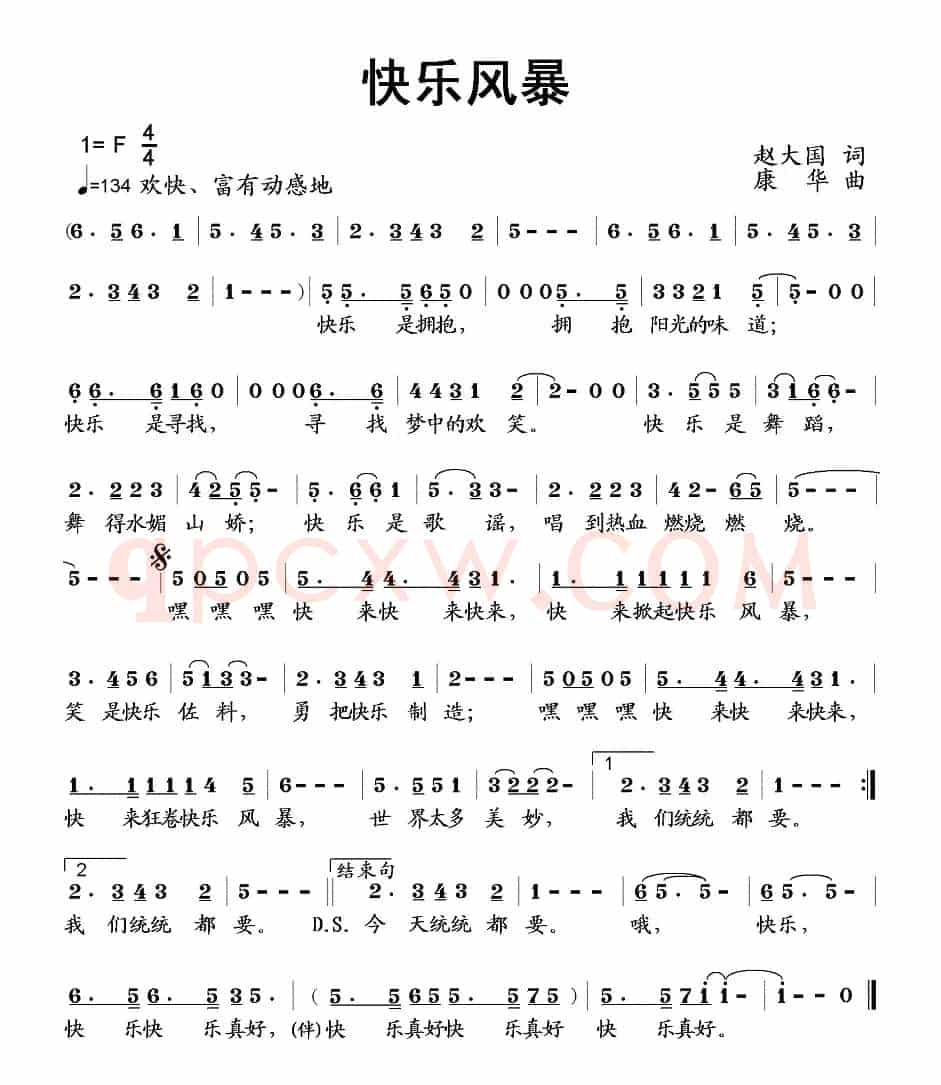 快乐风暴
1= F 4/4
赵大国 词
♩=134 欢快、富有动感地
康 华 曲
(6· 5 6· 1 | 5· 4 5· 3 | 2· 3 4 3 2 | 5 - - - | 6· 5 6· 1 | 5· 4 5· 3 |
2· 3 4 3 2 | 1 - - - ) | 5 5· 5 6 5 0 | 0 0 0 5· 5 | 3 3 2 1 5 | 5 - 0 0 |
快乐 是拥抱， 拥 抱 阳光的味 道；
6 6· 6 1 6 0 | 0 0 0 6· 6 | 4 4 3 1 2 | 2 - 0 0 | 3· 5 5 5 | 3 1 6 6 - |
快乐 是寻找， 寻 找 梦中的欢 笑。 快 乐是 舞 蹈，
2· 2 2 3 | 4 2 5 5 - | 5· 6 6 1 | 5· 3 3 - | 2· 2 2 3 | 4 2 - 6 5 | 5 - - - |
舞 得水媚 山 娇； 快 乐是 歌 谣， 唱 到热血 燃烧 燃 烧。
qpcxw.COM
5 - - - | 5 0 5 0 5 | 5· 4 4· 4 3 1 | 1· 1 1 1 1 1 6 | 5 - - - |
嘿 嘿 嘿 快 来快 来快来， 快 来掀起快乐 风 暴，
3· 4 5 6 | 5 1 3 3 - | 2· 3 4 3 1 | 2 - - - | 5 0 5 0 5 | 5· 4 4· 4 3 1 |
笑 是快乐 佐 料， 勇 把快乐 制 造； 嘿 嘿 嘿 快 来快 来快来，
1· 1 1 1 1 4 5 | 6 - - - | 5· 5 5 1 | 3 2 2 2 - | 1 2· 3 4 3 2 | 1 - - - :‖
快 来狂卷快乐 风 暴， 世 界太多 美 妙， 我 们统统 都 要。
2 结束句
2· 3 4 3 2 | 5 - - - ‖ 2· 3 4 3 2 | 1 - - - | 6 5· 5 - | 6 5· 5 - |
我 们统统 都 要。 D.S. 今 天统统 都 要。 哦， 快乐，
6· 5 6· 5 3 5· | ( 5· 5 6 5 5· 5 7 5 ) | 5· 5 7 1 1 - | 1 - - 0 ‖
快 乐快 乐真好， (伴)快 乐真好快 乐真好 快 乐真好。